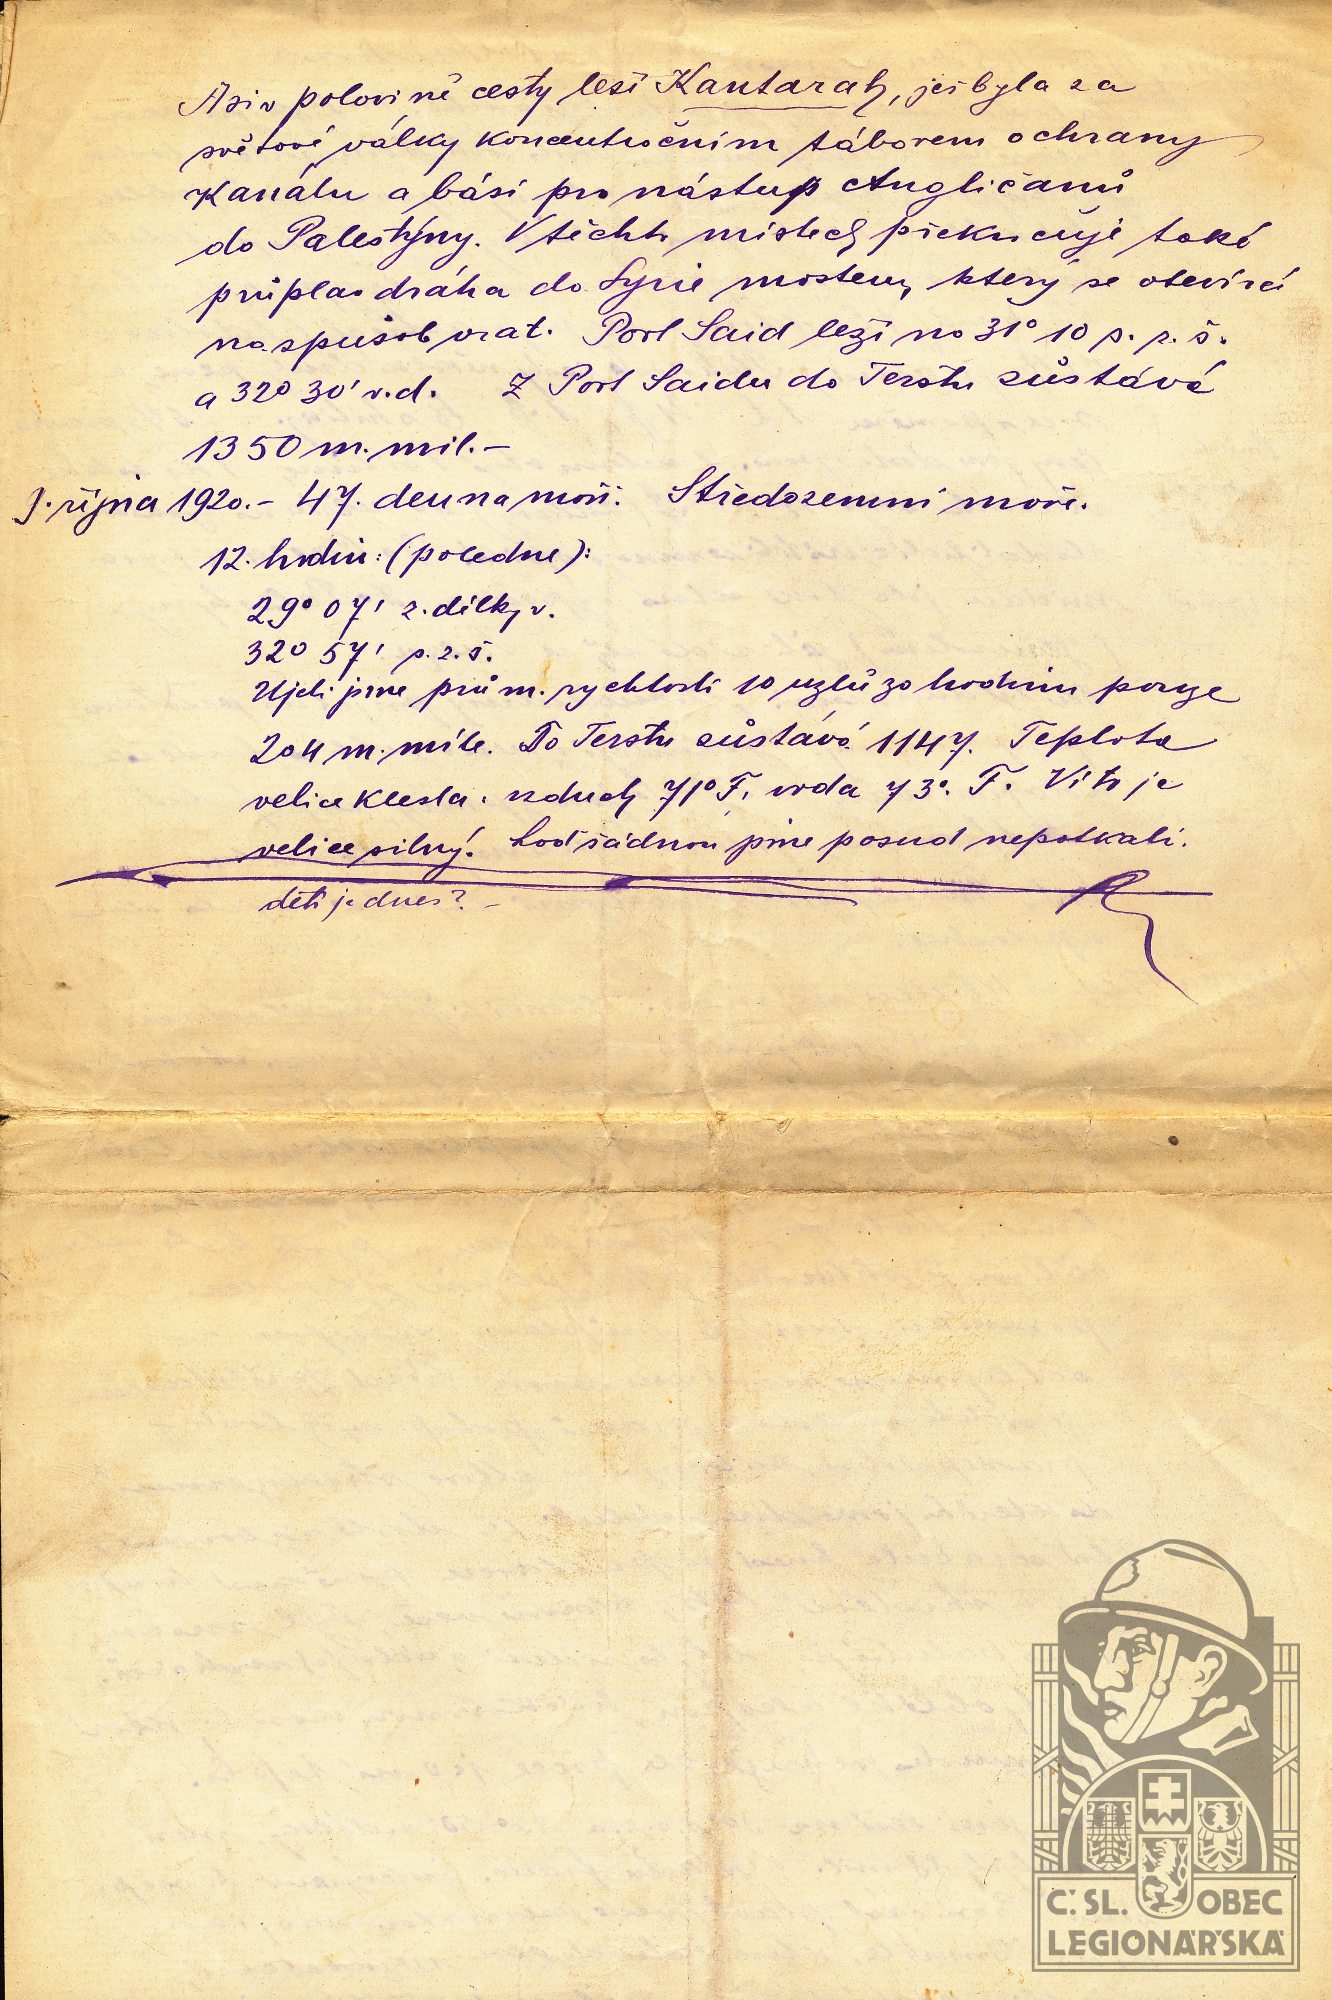 Asi v polovině cesty leží Kantarah, jež byla za
světové války koncentračním táborem ochrany
Kanálu a bási pro nástup Angličanů
do Palestýny. V těchto místech překračuje také
průplav dráha do Syrie mostem, který se otevírá
na způsob vrat. Port Said leží na 31° 10 s. z. š.
a 32° 30' v.d. Z Port Saidu do Terstu zůstává
1350 m. mil. -
října 1920. - 47. den na moři. Středozemní moře.
12. hodin: (poledne):
29° 07' z. délky v.
32° 57' s. z. š.
Ujeli jsme prům. rychlosti 10 uzlů za hodinu pouze
204 m. míle. Do Terstu zůstává 1147. Teplota
velice klesla. vzduch 71° F, voda 73°. F. Vítr je
velice silný. Loď žádnou jsme posud nepotkali.
děti je dnes? -
Č. SL. OBEC
LEGIONÁŘSKÁ